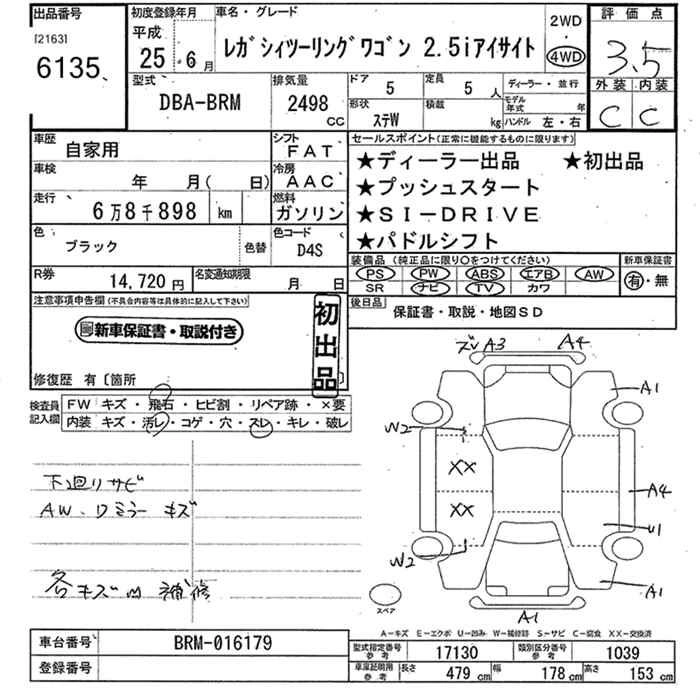 出品番号
[2163]
6135
初度登録年月
平成
25年 6月
車名・グレード
レガシィツーリングワゴン 2.5iアイサイト
2WD
・
4WD
評価点
3.5
外装 内装
C C
型式
DBA-BRM
排気量
2498
CC
ドア
5
定員
5人
形状
ステW
積載
kg
ディーラー・並行
モデル年式 年
ハンドル 左・右
車歴
自家用
シフト
FAT
車検
年 月( 日)
冷房
AAC
走行
6万8千898 km
燃料
ガソリン
色
ブラック
色替
色コード
D4S
R券
14,720円
名変通知期限
月 日
セールスポイント(正常に機能するものに限ります)
★ディーラー出品 ★初出品
★プッシュスタート
★SI-DRIVE
★パドルシフト
装備品 (純正品に限り○をつけてください)
PS PW ABS エアB AW
SR ナビ TV カワ
新車保証書
有・無
後日品
保証書・取説・地図SD
注意事項申告欄(不具合内容等は具体的に記入して下さい)
新車保証書・取説付き
初出品
修復歴 有〔箇所 〕
検査員記入欄
FW キズ・飛石・ヒビ割・リペア跡・×要
内装 キズ・汚レ・コゲ・穴・スレ・キレ・破レ
下廻りサビ
AW、ワミラー キズ
各キズ内 補修
ズレ A3 A4
A1
W2
XX
A4
XX
U1
W2
A1
A1
スペア
A-キズ E-エクボ U-凹み W-補修跡 S-サビ C-腐食 XX-交換済
車台番号
BRM-016179
登録番号
型式指定番号 参考
17130
類別区分番号 参考
1039
車庫証明用 参考
長さ 479 cm 幅 178 cm 高さ 153 cm